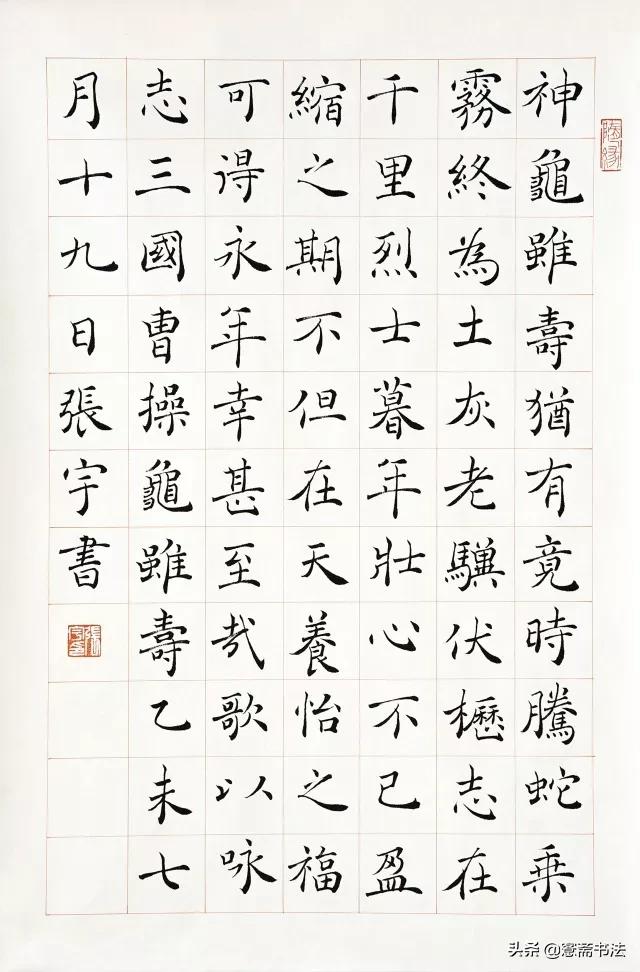 神龜雖壽猶有竟時騰蛇乘
霧終為土灰老驥伏櫪志在
千里烈士暮年壯心不已盈
縮之期不但在天養怡之福
可得永年幸甚至哉歌以咏
志三國曹操龜雖壽乙未七
月十九日張宇書
头条@寔斋书法